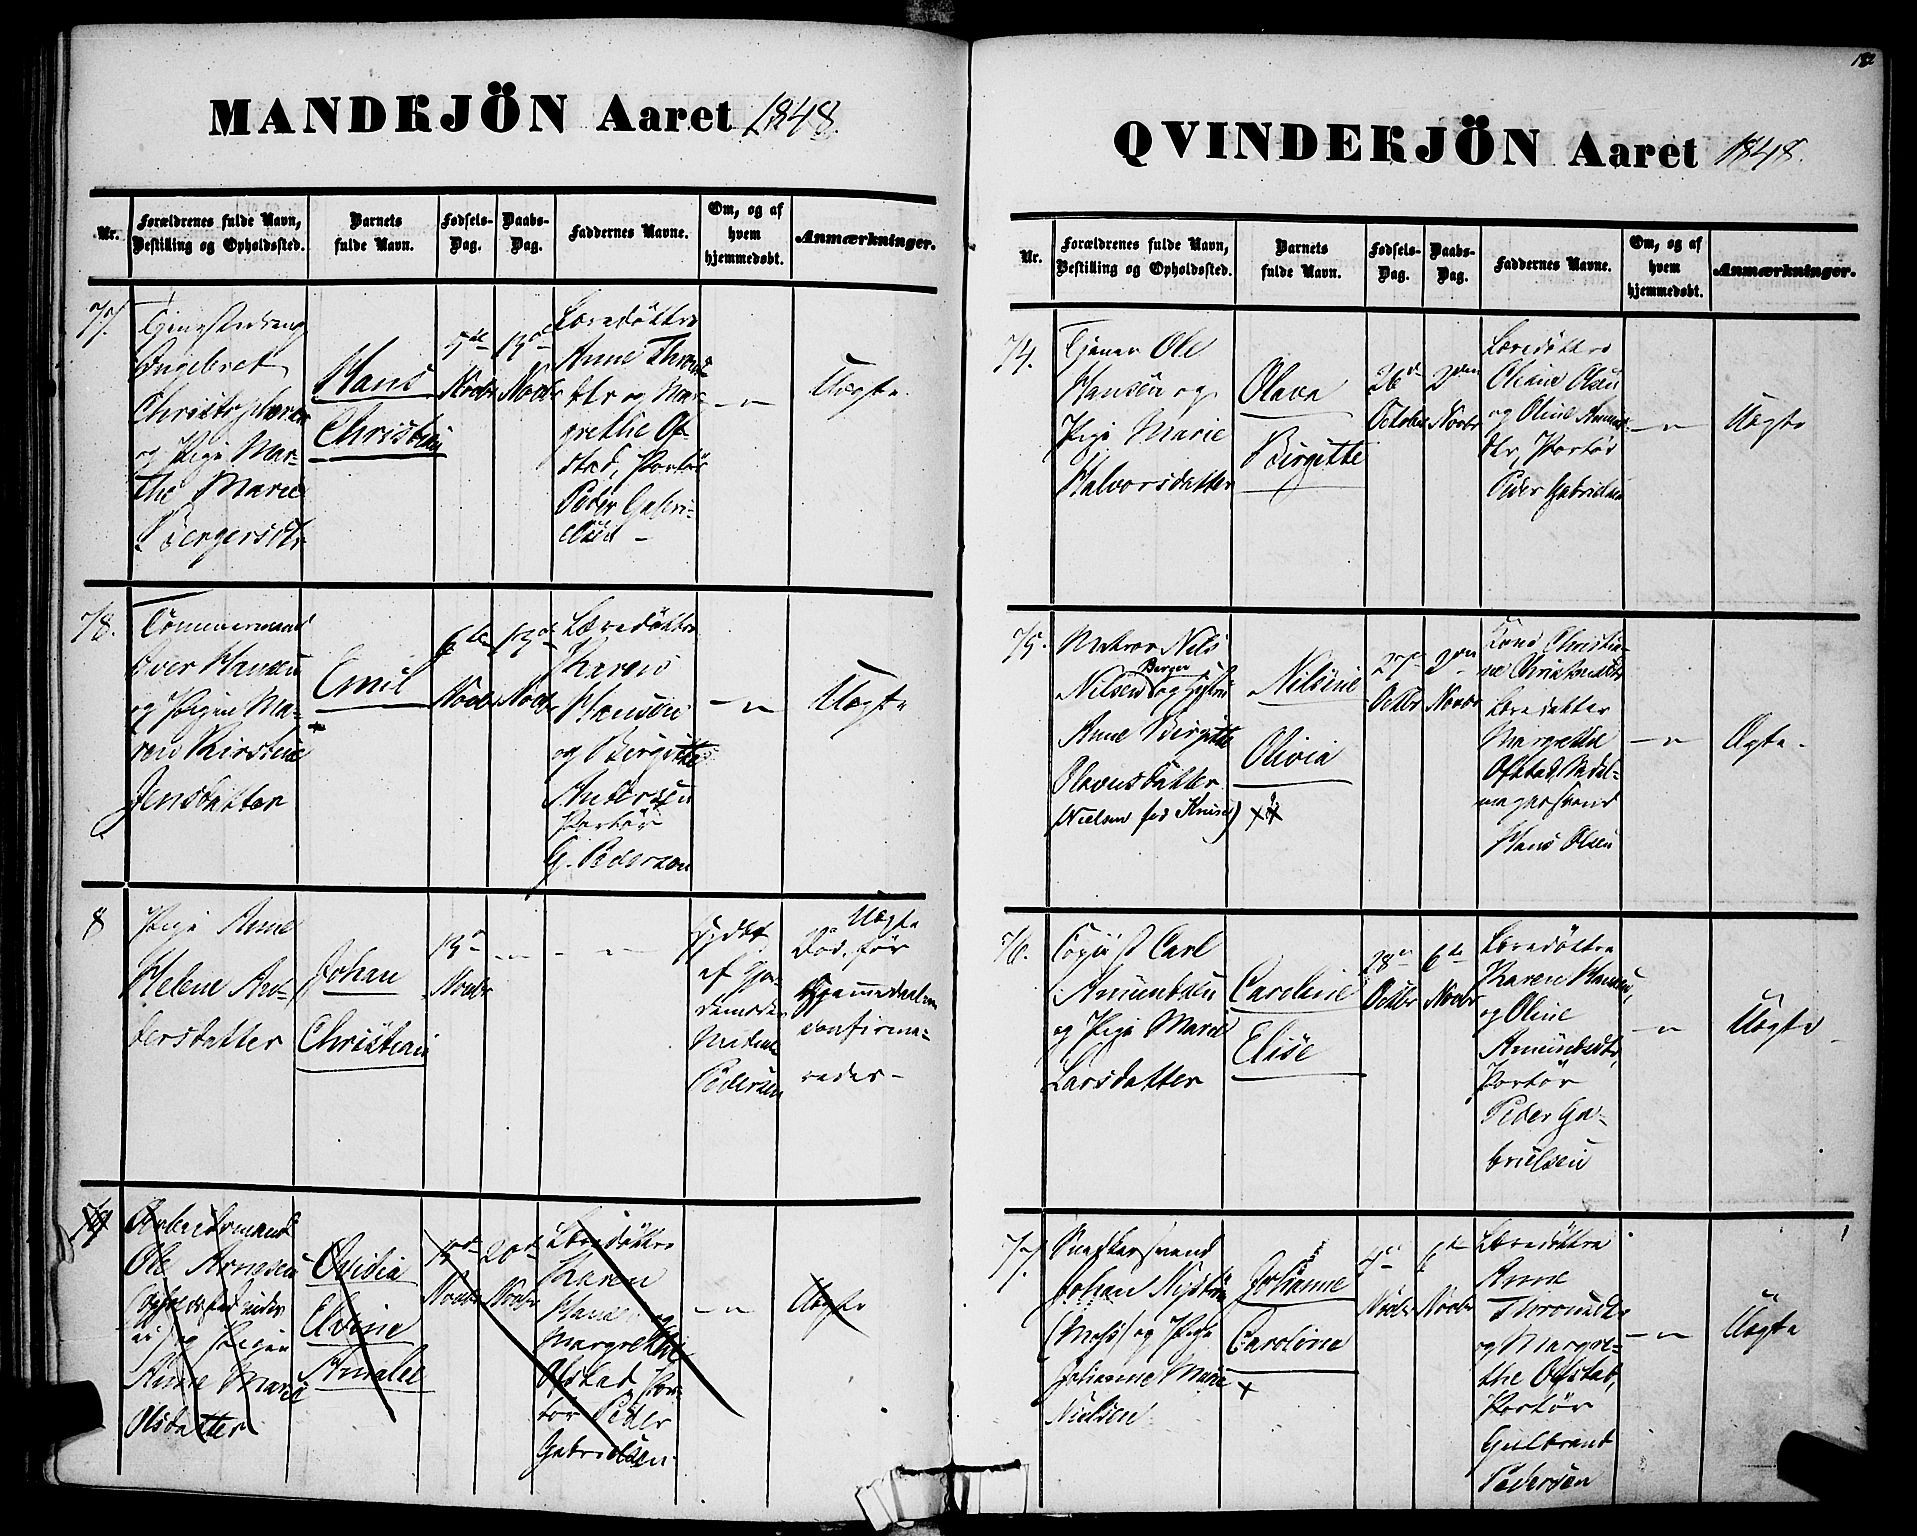 MANDKJÖN Aaret 1848.
Nr.
Forældrenes fulde Navn,
Bestilling og Opholdssted.
Barnets
fulde Navn.
Fødsels-
Dag.
Daabs-
Dag.
Faddernes Navne.
Om, og af
hvem
hjemmedøbt.
Anmærkninger.
77.
Tjenestedreng
Engebret
Christophersen
og Pige Mar-
the Marie
Børgersdtr
Hans
Christian
5te
Novbr
13de
Novbr
Læredøttre
Anne Thrond
dtr og Mar-
grethe Of-
stad, Portör
Peder Gabri-
elsen -
- " -
Uægte.
78.
Tömmermand
Iver Hansen
og Pigen Ma-
ren Kirstine
Jensdatter
Emil
6te
Novbr
13de
Novbr
Læredøttre
Karen
Hansen
og Birgitte
Andersen
Portör
G. Pedersen
- " -
Uægte
8
Pige Anne
Helene An-
dersdatter
Johan
Christian
13de
Novbr
- " -
- " -
døbt
af Jor-
demoder
Pedersen
Uægte
Död før
Hjemmedaaben
confirme-
redes -
79
Arbeidsmand
Ole Arnesen
og Pigen
Anne Marie
Olsdatter
Ovidia
Elvine
Amalie
Novbr
20de
Novbr
Læredøttre
Karen
Hansen og
Margrethe
Ofstad, Por-
tör Peder
Gabrielsen.
- " -
Uægte
182
QVINDEKJÖN Aaret 1848.
Nr.
Forældrenes fulde Navn,
Bestilling og Opholdssted.
Barnets
fulde Navn.
Fødsels-
Dag.
Daabs-
Dag.
Faddernes Navne.
Om, og af
hvem
hjemmedøbt.
Anmærkninger.
74.
Tjener Ole
Hansen og
Pige Marie
Halvorsdatter
Olava
Birgitte
26de
October
2den
Novbr
Læredøttre
Oline Olsen
og Oline Amund-
dtr, Portör
Peder Gabrielsen
- " -
Uægte
75.
Matros Nils
Berger
Nilsen og Hustru
Anne Birgitte
Olavusdatter
(Nielsen fød Knüs)
Nilsine
Olivia
27de
Octbr
2den
Novbr
Kone Christi-
ne Christensdtr
Læredatter
Margrethe
Ofstad, Sadel-
magersvend
Hans Olsen
- " -
Ægte.
76.
Carl
Amundsen
og Pige Maren
Larsdatter
Caroline
Elise
28de
Octbr
6te
Novbr
Læredøttre
Karen Hansen,
og Oline
Amundsdtr,
Portör
Peder Ga-
brielsen
- " -
Uægte
77.
Snedkersvend
Johan Nyström
(Moss) og Pige
Johanne Marie
Nielsen
Johanne
Caroline
4de
Novbr
6te
Novbr
Læredøttre
Anne
Thronddtr
og Margre-
the Ofstad,
Portör
Gulbrand
Pedersen
- " -
Uægte